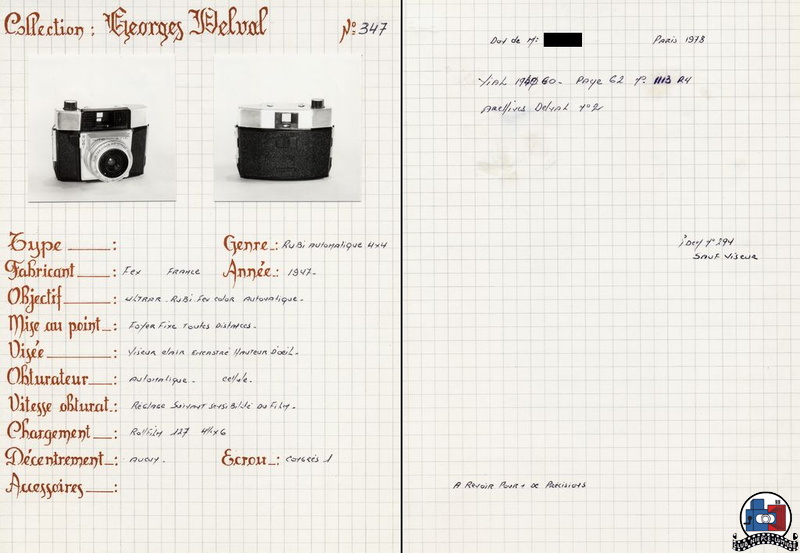 Collection : Georges Delval N° 347
Type : Genre : Rubi Automatique 4x4
Fabricant : Fex France Année : 1947.
Objectif : Ultrar Rubi Fex color Automatique.
Mise au point : Foyer Fixe Toutes Distances.
Visée : Viseur clair encastré Hauteur D'oeil.
Obturateur : Automatique. cellule.
Vitesse obturat. : Réglage Suivant sensibilité Du Film.
Chargement : Rollfilm 127
Décentrement : Aucun. Ecrou : Congrès 1
Accessoires :
Don de Mr Paris 1978
Vial 60 - Page 62 N° 1113 R4
Archives Delval N°2
idem N° 294
Sauf Viseur
A Revoir Pour + de Précisions